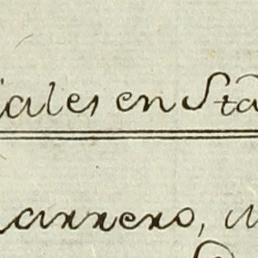 iales en Sta
arrero,